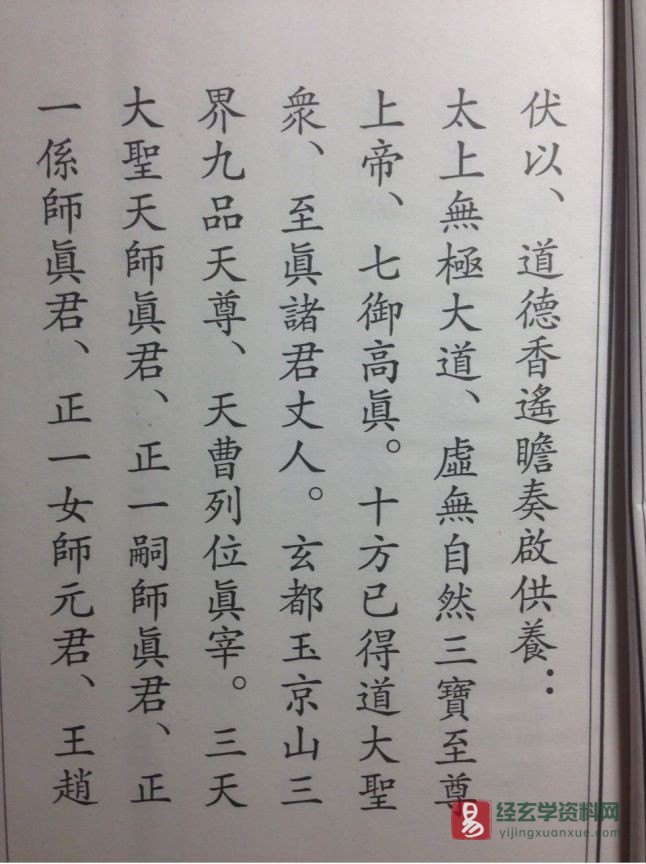 伏以、道德香遙瞻奏啟供養：
太上無極大道、虛無自然三寶至尊
上帝、七御高眞。十方已得道大聖
衆、至眞諸君丈人。玄都玉京山三
界九品天尊、天曹列位眞宰。三天
大聖天師眞君、正一嗣師眞君、正
一係師眞君、正一女師元君、王趙
易
经玄学资料网
yijingxuanxue.com